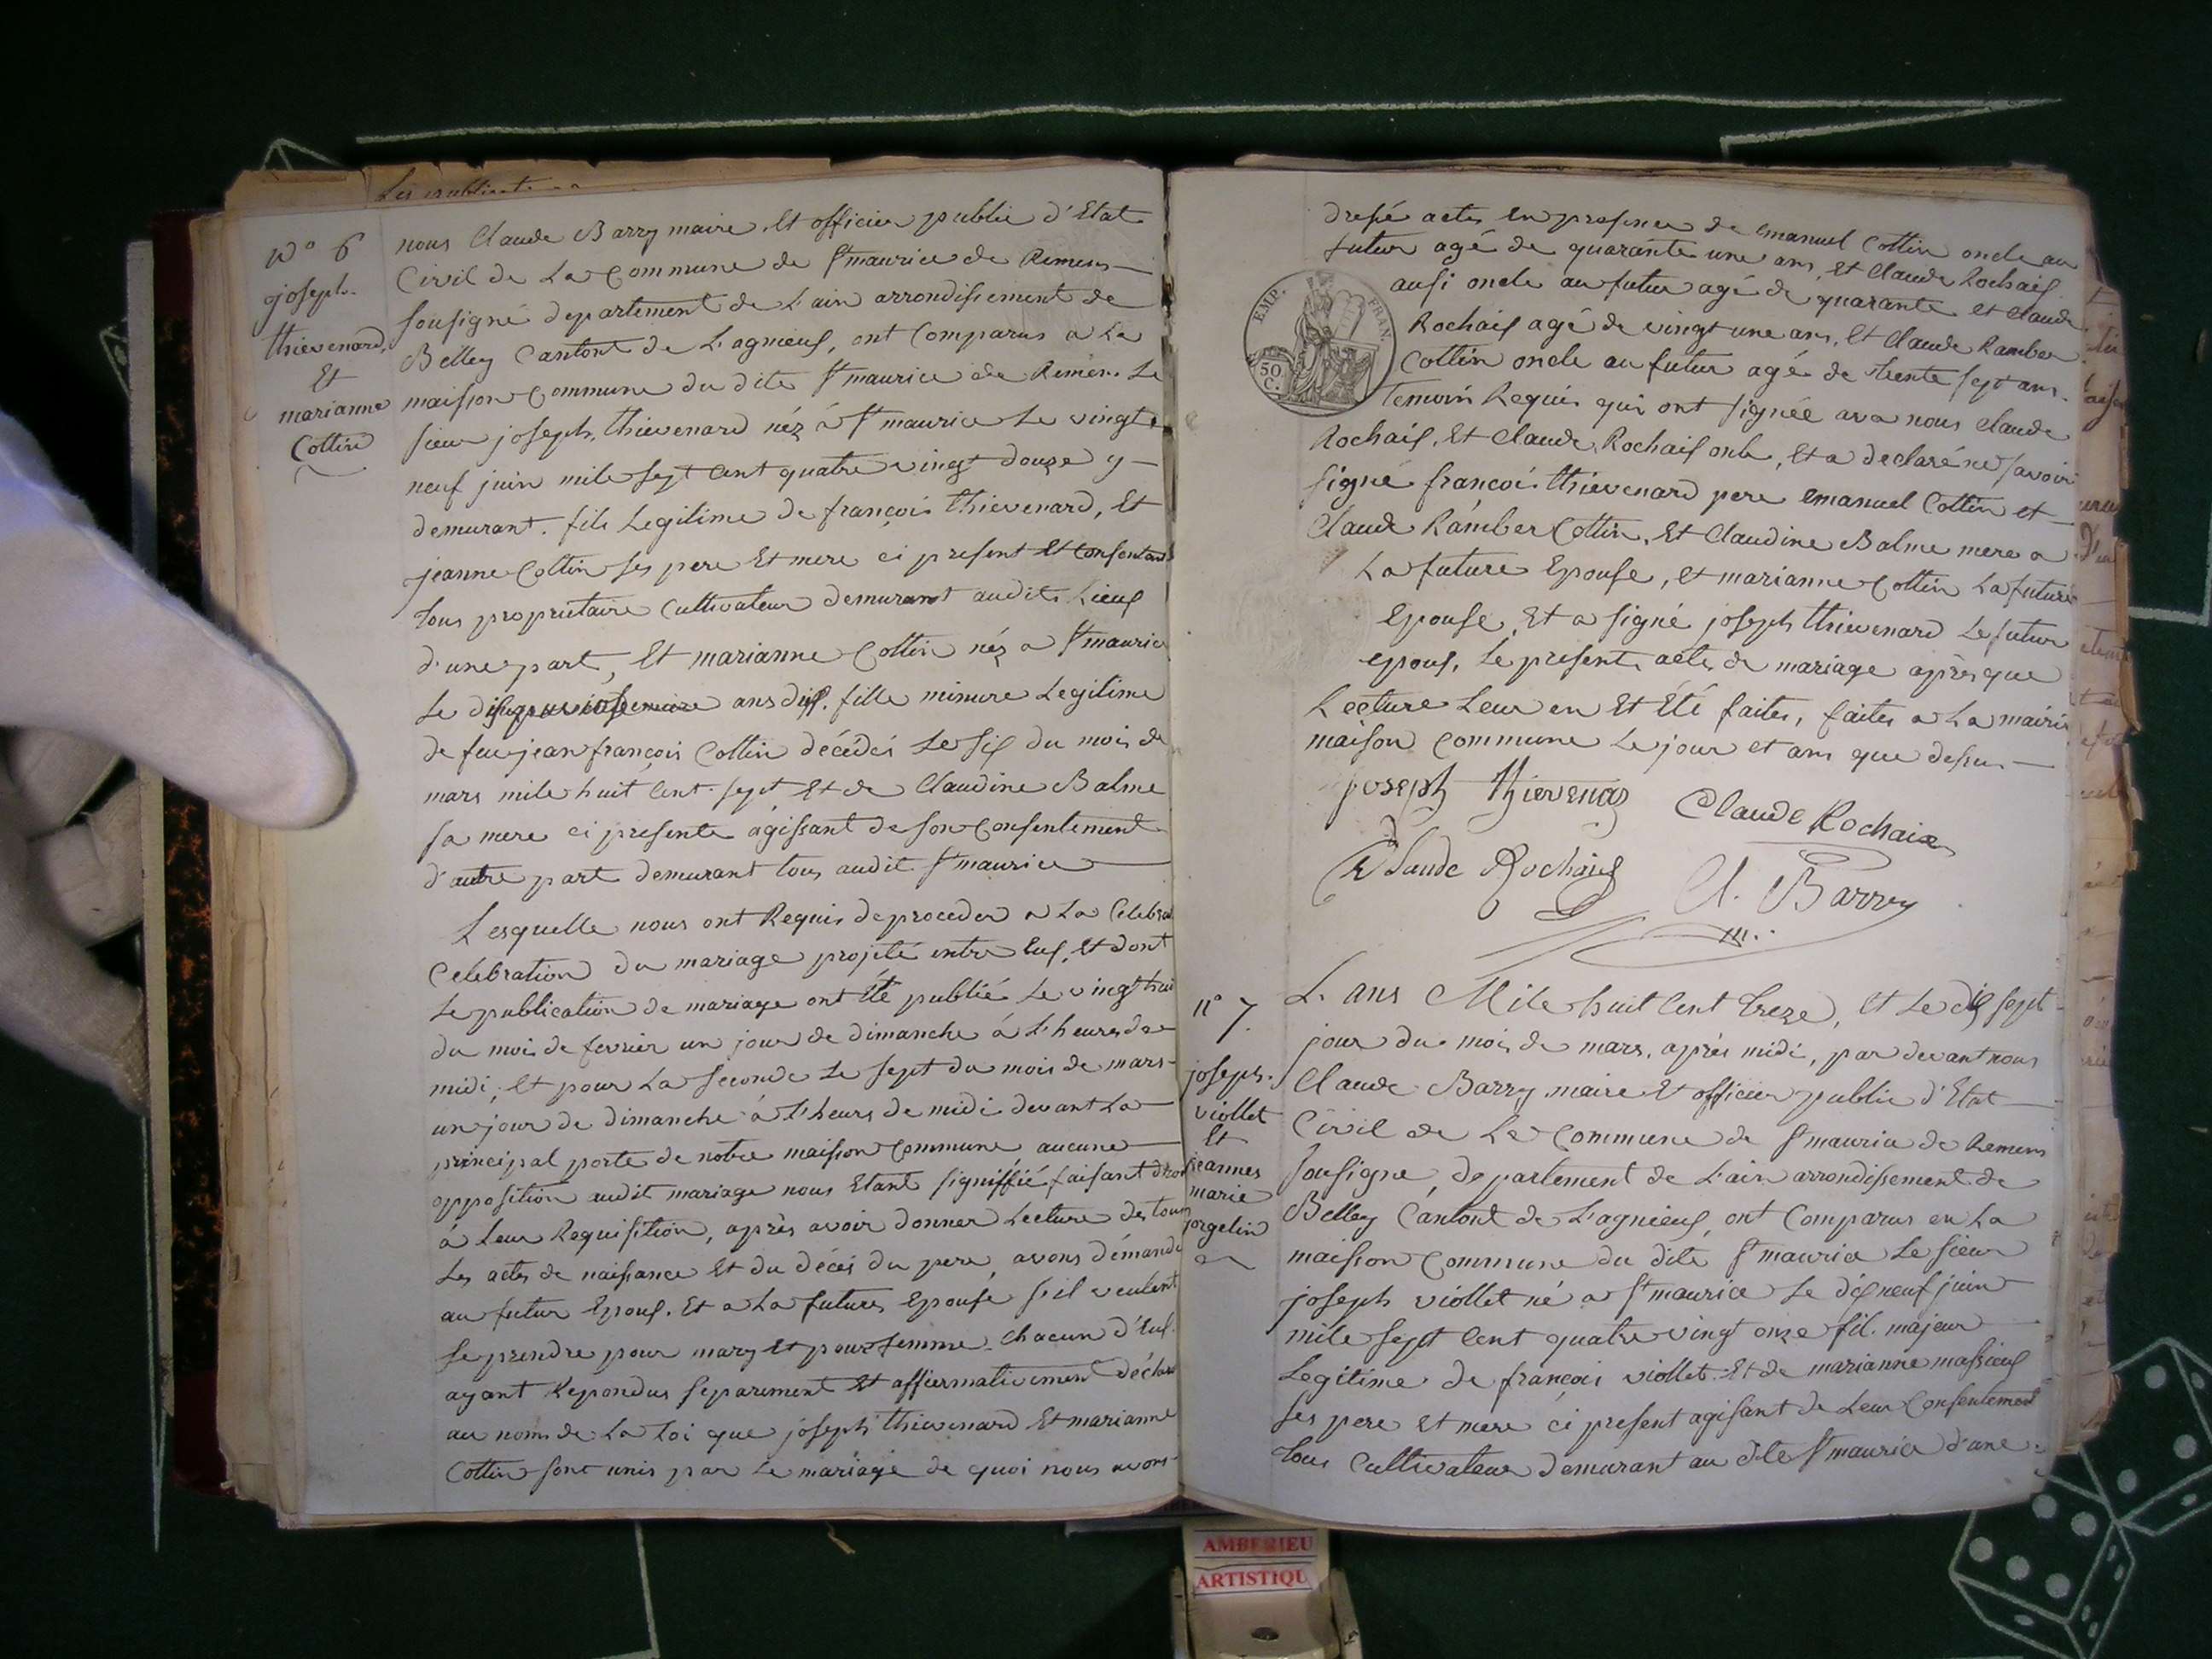 N° 6
joseph
thievenard,
Et
marianne
Cottin
nous Claude Barry maire, Et officier public d'Etat
Civil de La Commune de St maurice de Remens
sousigné departement de L'ain arrondissement de
Belley Cantont de L'agnieux, ont Comparus a La
maison Commune du dite St maurice de Remens Le
sieur joseph thievenard néz á St maurice Le vingt
neuf juin mile sept Cent quatre vingt douze y
demurant. fils Legitime de françois thievenard, Et
jeanne Cottin ses pere Et mere ci present Et Consentant
tous proprietaire Cultivateur demurant audit Lieux
d'une part, Et marianne Cottin néz a St maurice
Le ans dix. fille minure Legitime
de feu jean françois Cottin décédés Le six du mois de
mars mile huit Cent sept Et de Claudine Balme
sa mere ci presente agissant de son Consentement
d'autre part demurant tous audit St maurice
Lesquelle nous ont Requis de proceder a La Celebra
Celebration du mariage projeté entre Eux, Et dont
Le publication de mariage ont Eté publié Le vingt huit
du mois de fevrier un jour de dimanche á L'heure de
midi, Et pour La seconde Le sept du mois de mars
un jour de dimanche á L'heure de midi devant La
principal porte de notre maison Commune aucune
opposition audit mariage nous Etant signiffié faisant droit
á Leur Requisition, après avoir donner Lecture des tous
Les actes de naissance Et du décés du pere, avons démandé
au futur Epoux. Et a La future Epouse s'il veulent
se prendre pour mary Et pour femme. Chacun d'Eux
ayant Repondus separement Et affiermativement déclare
au nom de La Loi que joseph thievenard Et marianne
Cottin sont unis par Le mariage de quoi nous avons
dressé actes En presence de Emanuel Cottin oncle au
futur agé de quarante une ans, Et Claude Rochaix
EMP. FRAN.
50
C.
ausi oncle au futur agé de quarante et Claude
Rochaix agé de vingt une ans, Et Claude Ramber
Cottin oncle au futur agé de trente sept ans.
temoin Requis qui ont signée ava nous Claude
Rochaix, Et Claude Rochaix , Et a declaré ne savoir
signé françois thievenard pere Emanuel Cottin et
Claude Ramber Cottin, Et Claudine Balme mere a
La future Epouse, et marianne Cottin La future
Epouse, Et a signé joseph thievenard Le futur
epoux, Le present actes de mariage après que
Lecture Leur en Et Eté faites, faites a La mairie
maison Commune Le jour et ans que dessus
joseph thievenard
Claude Rochaix
Claude Rochaix
Cl. Barry
m.
n° 7.
joseph
viollet
Et
jeannes
marie
jorgelin
L'ans Mile huit Cent treze, et Le dix sept
jour du mois de mars, après midi, par devant nous
Claude Barry maire Et officier public d'Etat
Civil de La Commune de St maurice de Remens
sousigné, departement de L'ain arrondissement de
Belley Cantont de L'agnieux, ont Comparus en La
maison Commune du dite St maurice Le sieur
joseph viollet né a St maurice Le dix neuf juin
mile sept Cent quatre vingt onze fil. majeur
Legitime de françois viollet. Et de marianne massieux
ses pere et mere ci present agisant de Leur Consentement
tous Cultivateur demurant au dite St maurice d'une
AMBERIEU
ARTISTIQU